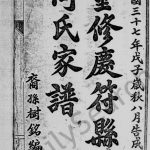 國三十七年戊子歲秋八月告成
重修慶符縣
何氏家譜
裔孫樹銘編